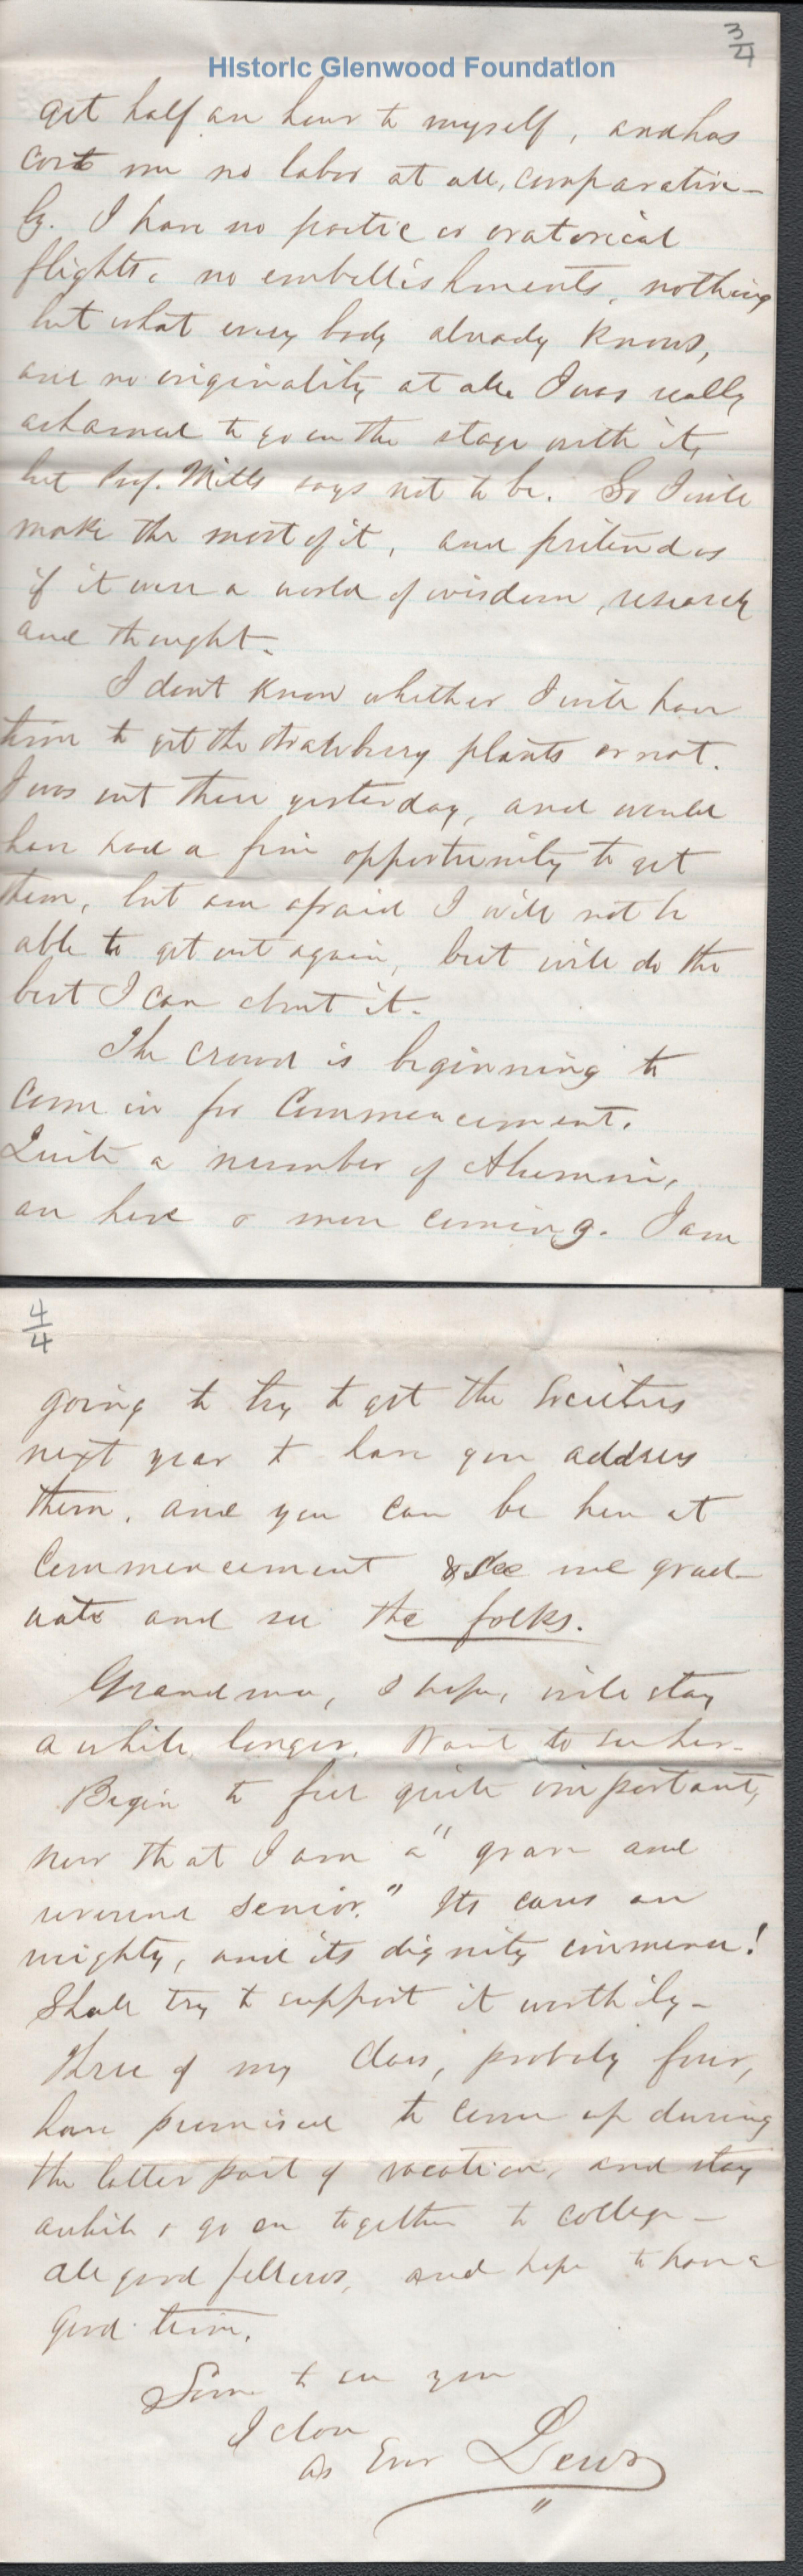 3/4
Historic Glenwood Foundation
get half an hour to myself, and has
cost me no labor at all, comparative-
ly. I have no poetic or oratorical
flights, no embellishments, nothing
but what every body already knows,
and no originality at all. I was really
ashamed to go on the stage with it,
but Prof. Mills says not to be. So I will
make the most of it, and pretend as
if it were a world of wisdom, research
and thought.
I dont know whether I will have
time to get the strawberry plants or not.
I was out there yesterday, and would
have had a fine opportunity to get
them, but am afraid I will not be
able to get out again, but will do the
best I can about it.
The crowd is beginning to
come in for Commencement.
Quite a number of Alumni,
are here & more coming. I am
4/4
going to try to get the Societies
next year to have you address
them, and you can be here at
Commencement & see me grad-
uate and see the folks.
Grandma, I hope, will stay
a while longer. Want to see her.
Begin to feel quite important,
now that I am a "grave and
reverend senior." Its cares are
mighty, and its dignity immense!
Shall try to support it worthily-
Three of my class, probably four,
have promised to come up during
the latter part of vacation, and stay
awhile & go on together to college-
All good fellows, and hope to have a
good time.
Soon to see you
I close
As Ever Lewis